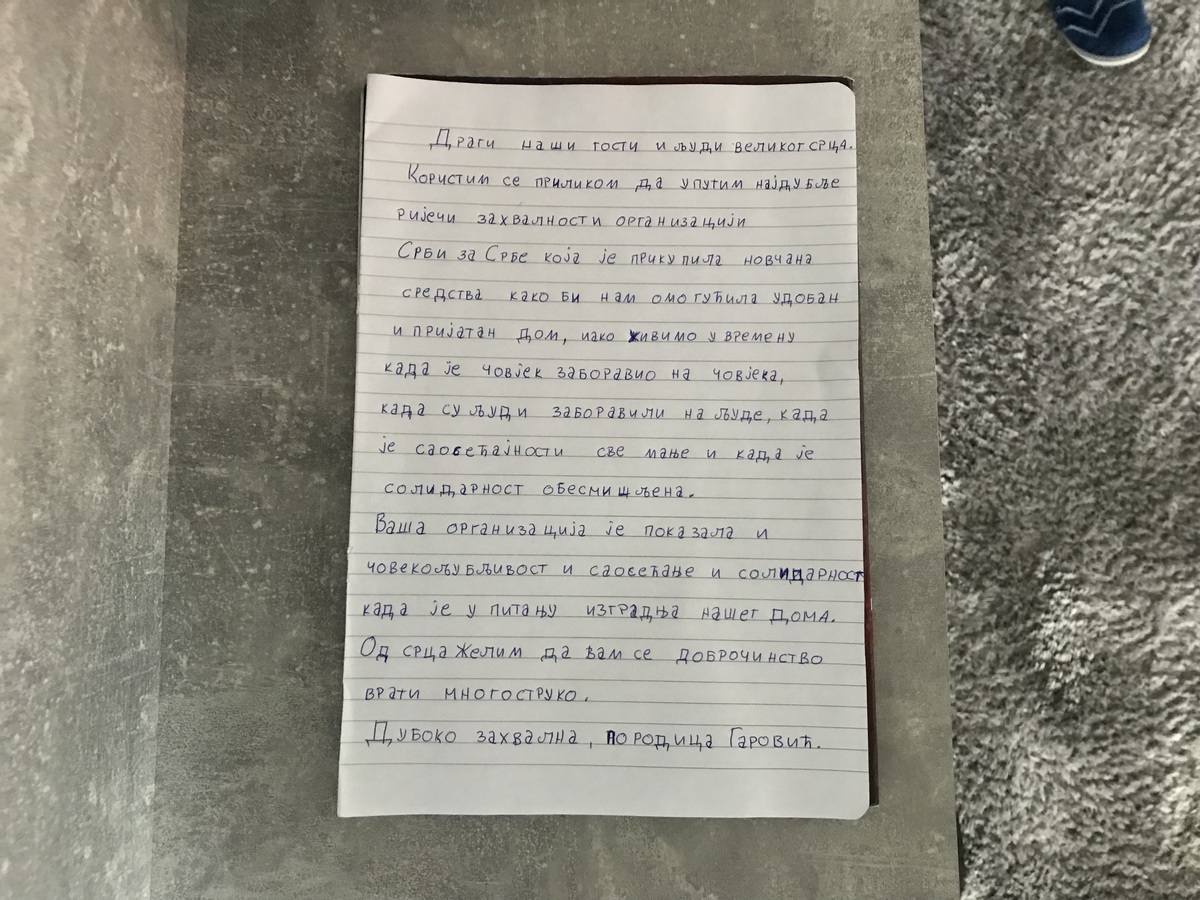 Драги наши гости и људи великог срца.
Користим се приликом да упутим најдубље
ријечи захвалности организацији
Срби за Србе која је прикупила новчана
средства како би нам омогућила удобан
и пријатан дом, иако живимо у времену
када је човјек заборавио на човјека,
када су људи заборавили на људе, када
је саосећајности све мање и када је
солидарност обесмишљена.
Ваша организација је показала и
човекољубљивост и саосећање и солидарност
када је у питању изградња нашег дома.
Од срца желим да вам се доброчинство
врати многоструко.
Дубоко захвална, породица Гаровић.